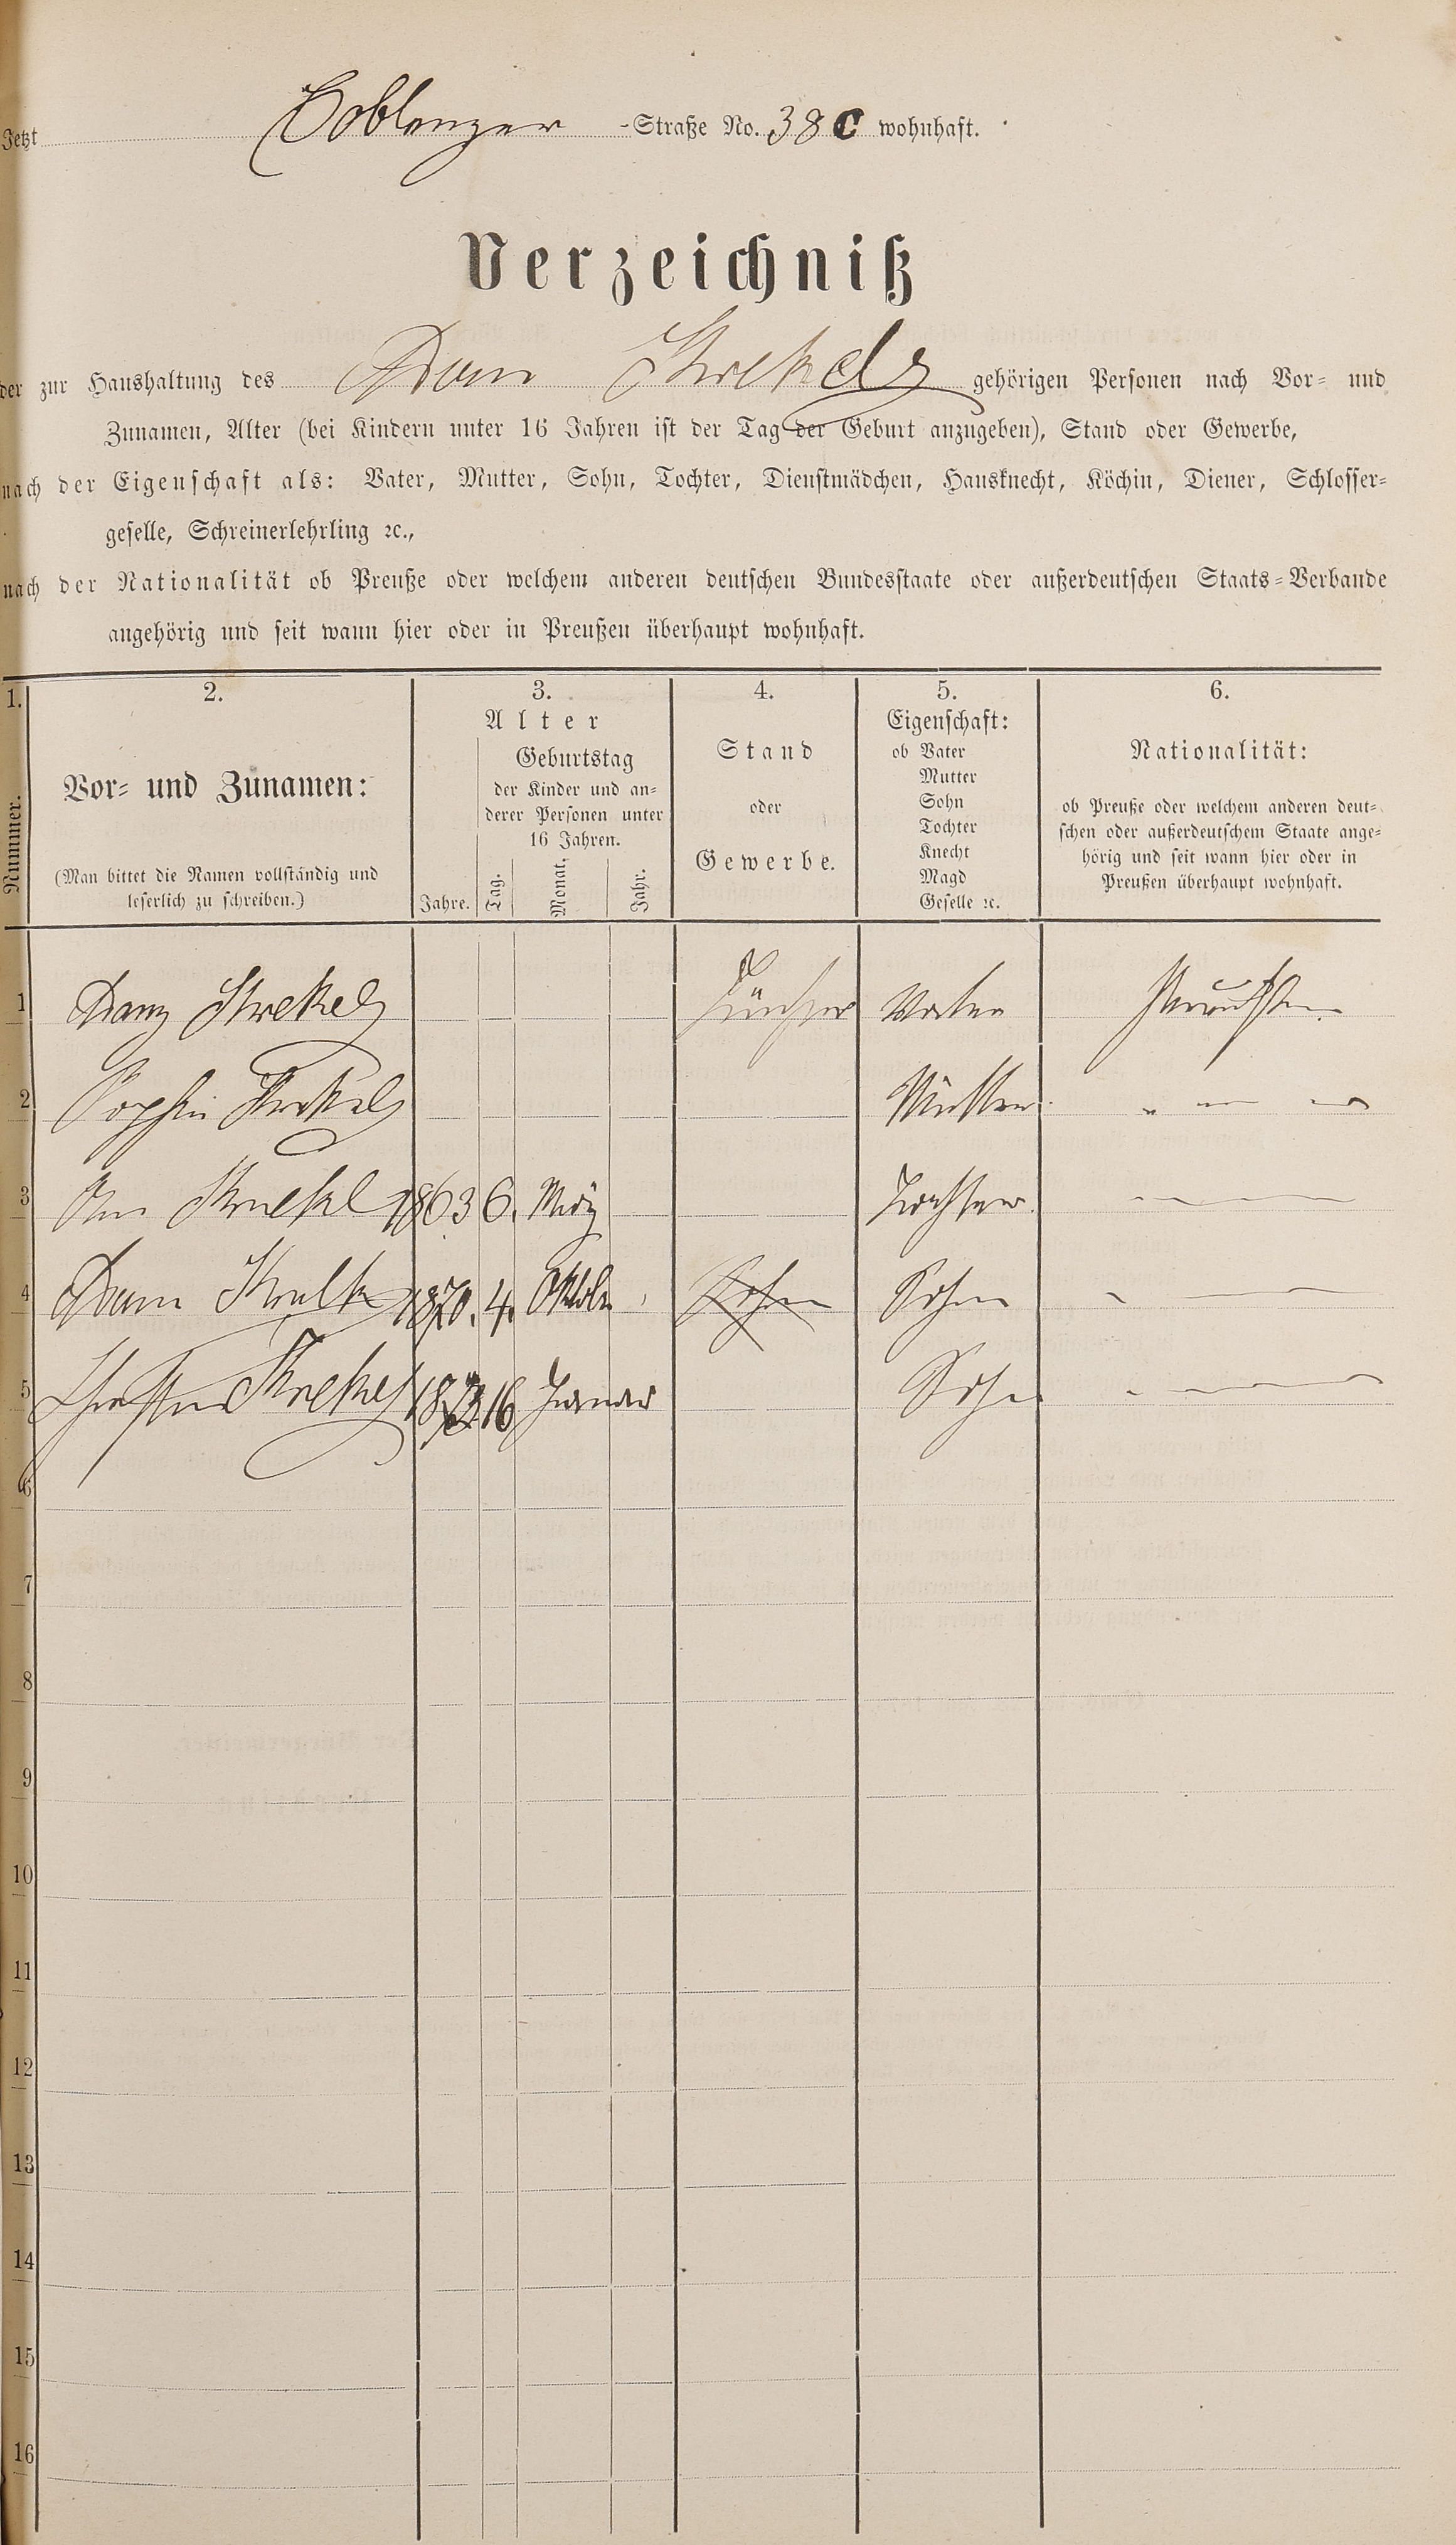 Jetzt Coblenzer -Straße No. 38 c wohnhaft.
Verzeichniß
der zur Haushaltung des Strekels gehörigen Personen nach Vor- und
Zunamen, Alter (bei Kindern unter 16 Jahren ist der Tag der Geburt anzugeben), Stand oder Gewerbe,
nach der Eigenschaft als: Vater, Mutter, Sohn, Tochter, Dienstmädchen, Hausknecht, Köchin, Diener, Schlosser-
geselle, Schreinerlehrling ꝛc.,
nach der Nationalität ob Preuße oder welchem anderen deutschen Bundesstaate oder außerdeutschen Staats-Verbande
angehörig und seit wann hier oder in Preußen überhaupt wohnhaft.
1.
Nummer.
2.
Vor- und Zunamen:
(Man bittet die Namen vollständig und
leserlich zu schreiben.)
3.
Alter
Jahre.
Geburtstag
der Kinder und an-
derer Personen unter
16 Jahren.
Tag.
Monat.
Jahr.
4.
Stand
oder
Gewerbe.
5.
Eigenschaft:
ob Vater
Mutter
Sohn
Tochter
Knecht
Magd
Geselle ꝛc.
6.
Nationalität:
ob Preuße oder welchem anderen deut-
schen oder außerdeutschem Staate ange-
hörig und seit wann hier oder in
Preußen überhaupt wohnhaft.
1 Strekels Vater
2 Sophie Strekels Mutter " — —
3 1863 6. März Tochter " — —
4 1870. 4. Oktober Sohn Sohn " — —
5 Strekels 16 Januar Sohn " — —
6
7
8
9
10
11
12
13
14
15
16